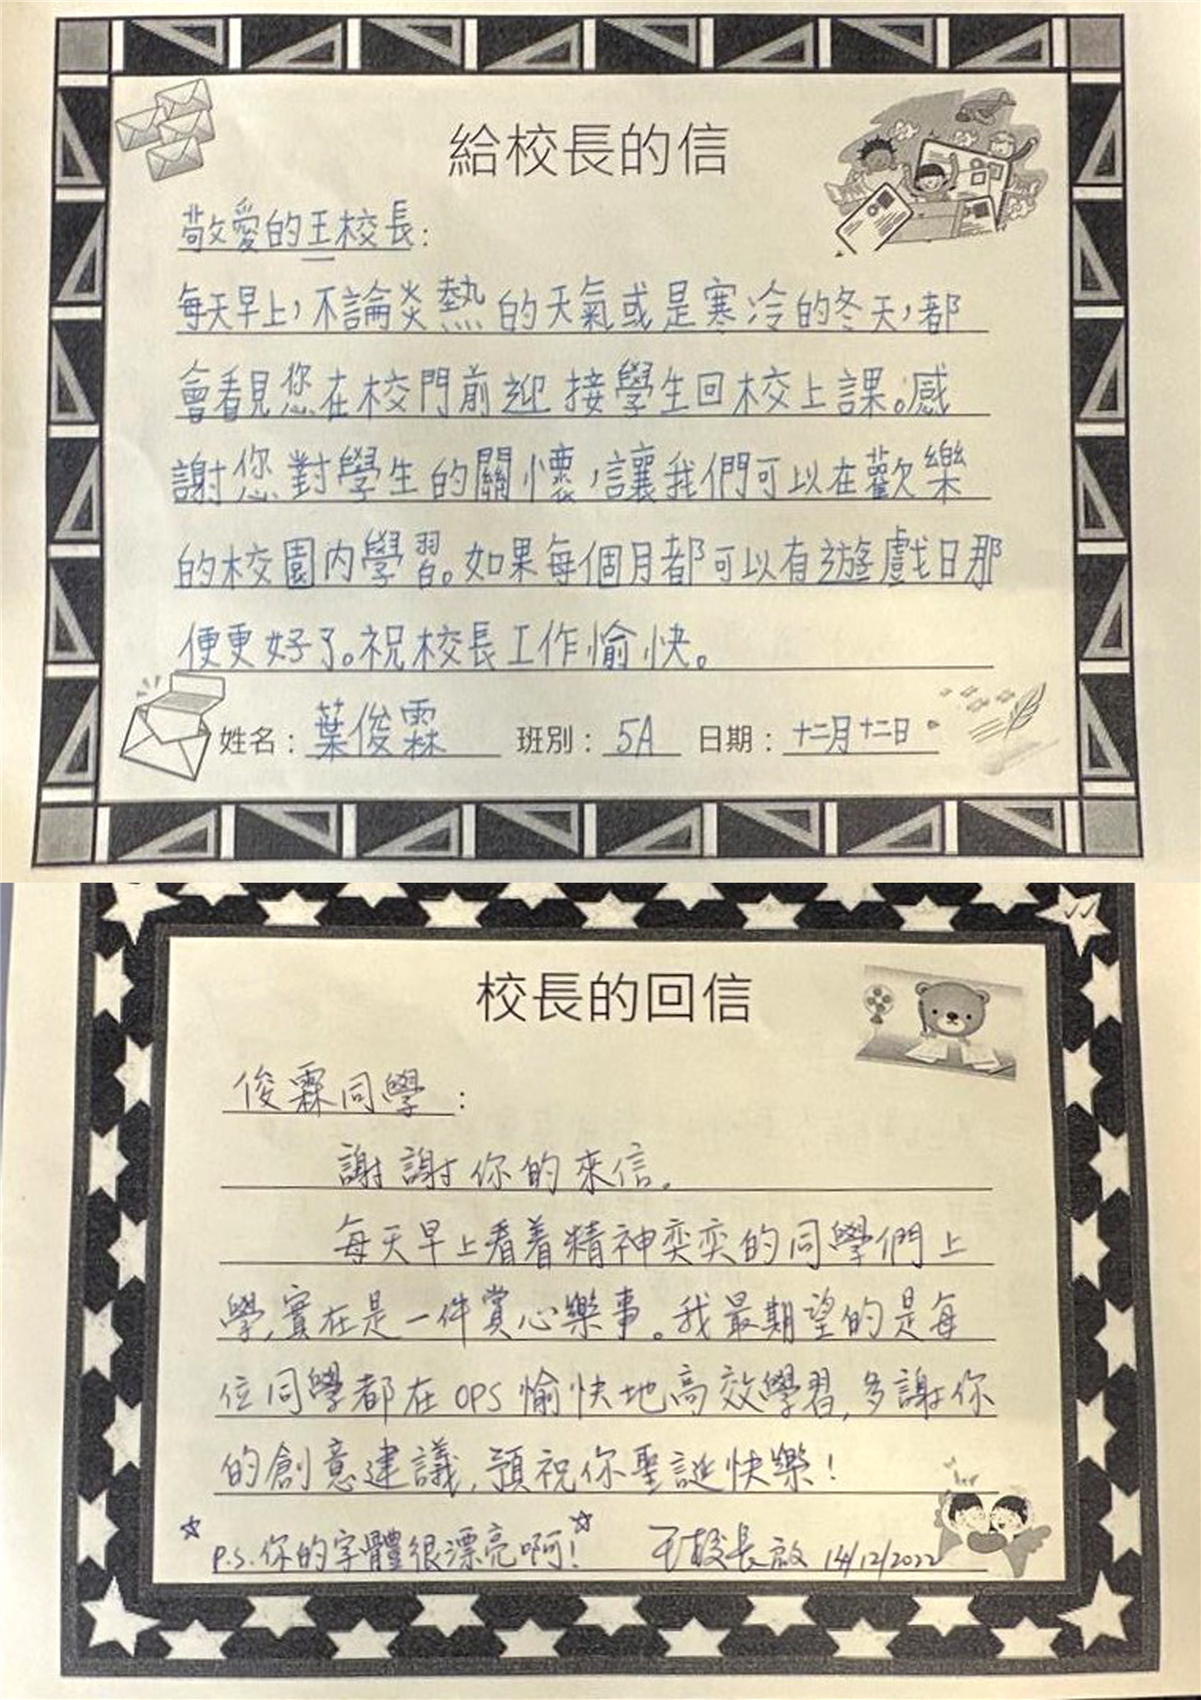 給校長的信
敬愛的王校長：
每天早上，不論炎熱的天氣或是寒冷的冬天，都
會看見您在校門前迎接學生回校上課。感
謝您對學生的關懷，讓我們可以在歡樂
的校園內學習。如果每個月都可以有遊戲日那
便更好了。祝校長工作愉快。
姓名：葉俊霖 班別：5A 日期：十二月十二日
校長的回信
俊霖同學：
謝謝你的來信。
每天早上看着精神奕奕的同學們上
學，實在是一件賞心樂事。我最期望的是每
位同學都在OPS愉快地高效學習，多謝你
的創意建議，預祝你聖誕快樂！
☆P.S.你的字體很漂亮啊！☆ 王校長啟 14/12/2022